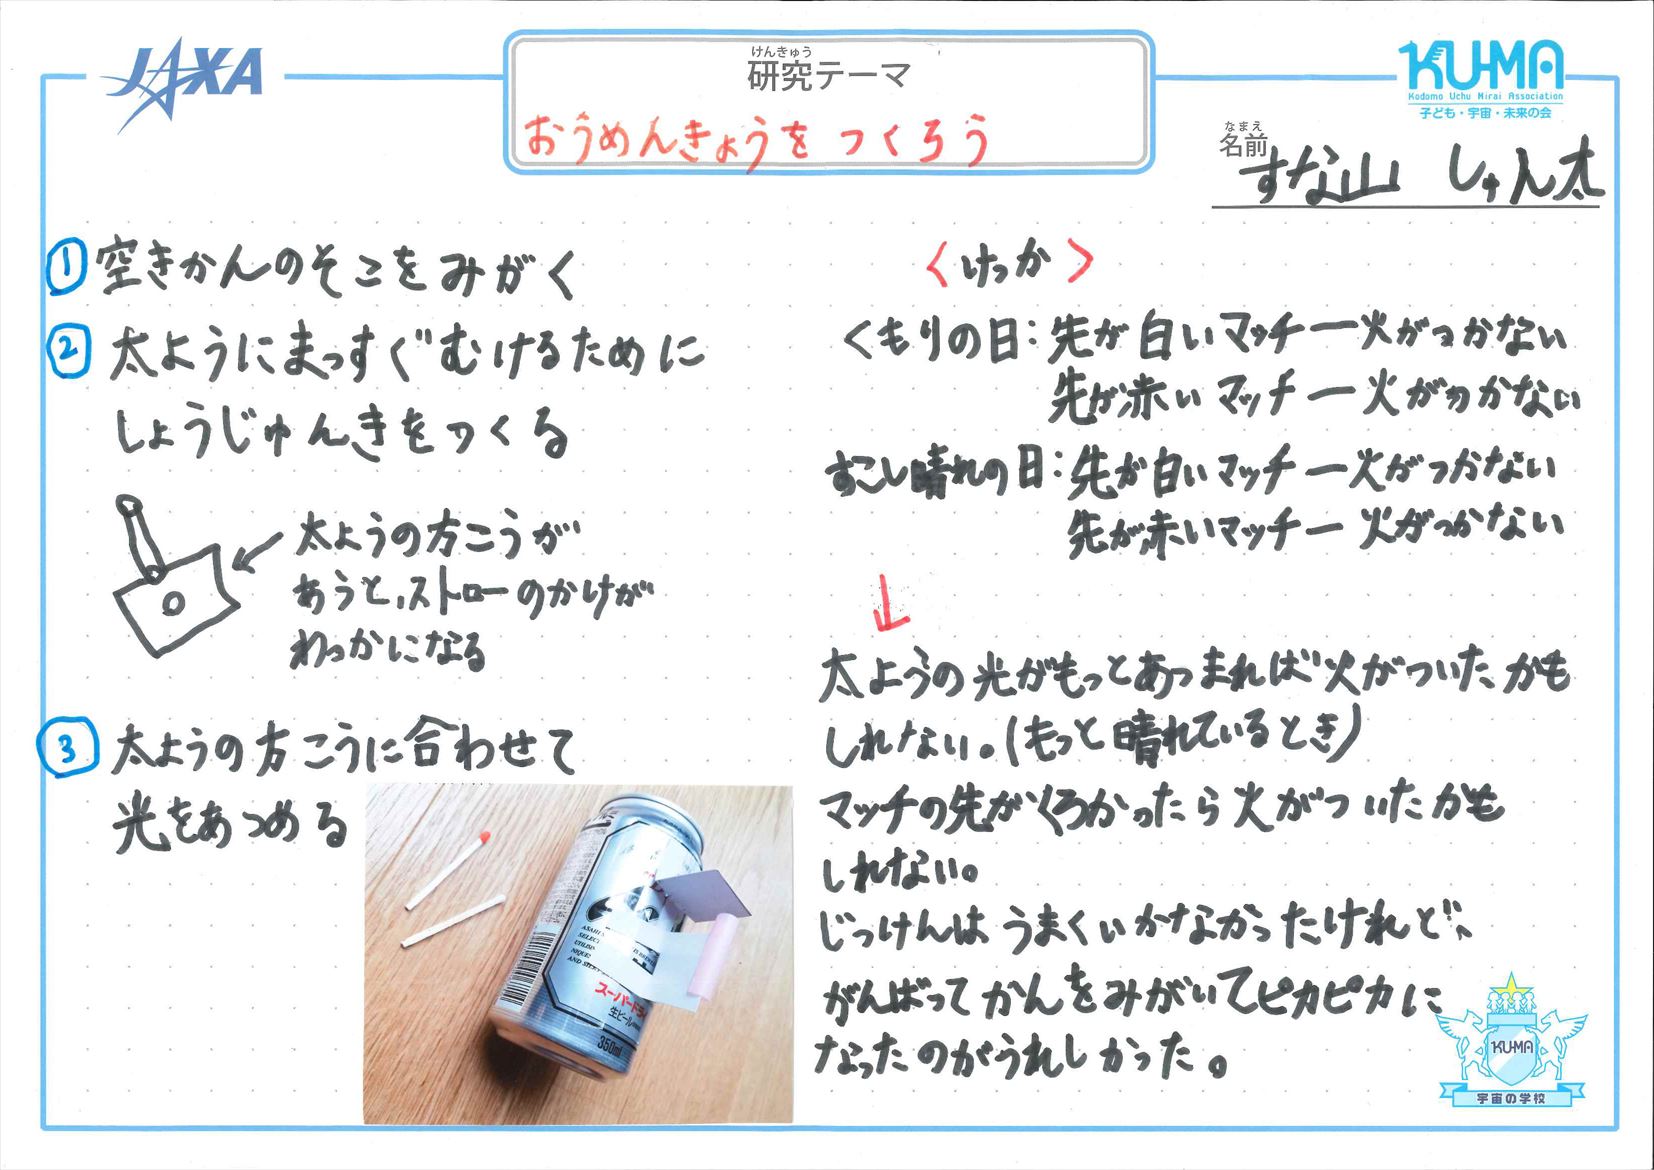 JAXA
けんきゅう
研究テーマ
おうめんきょうをつくろう
KU-MA
Kodomo Uchu Mirai Association
子ども・宇宙・未来の会
なまえ
名前
すな山 しゅん太
① 空きかんのそこをみがく
② 太ようにまっすぐむけるために
しょうじゅんきをつくる
太ようの方こうが
あうと、ストローのかげが
わっかになる
③ 太ようの方こうに合わせて
光をあつめる
ASAHI
SELECT
UTILIS
NIQUE
AND ST
スーパードラ
生ビール
350ml
<けっか>
くもりの日：先が白いマッチー火がつかない
先が赤いマッチー火がつかない
すこし晴れの日：先が白いマッチー火がつかない
先が赤いマッチー火がつかない
↓
太ようの光がもっとあつまれば火がついたかも
しれない。(もっと晴れているとき)
マッチの先がくろかったら火がついたかも
しれない。
じっけんはうまくいかなかったけれど、
がんばってかんをみがいてピカピカに
なったのがうれしかった。
KU-MA
宇宙の学校